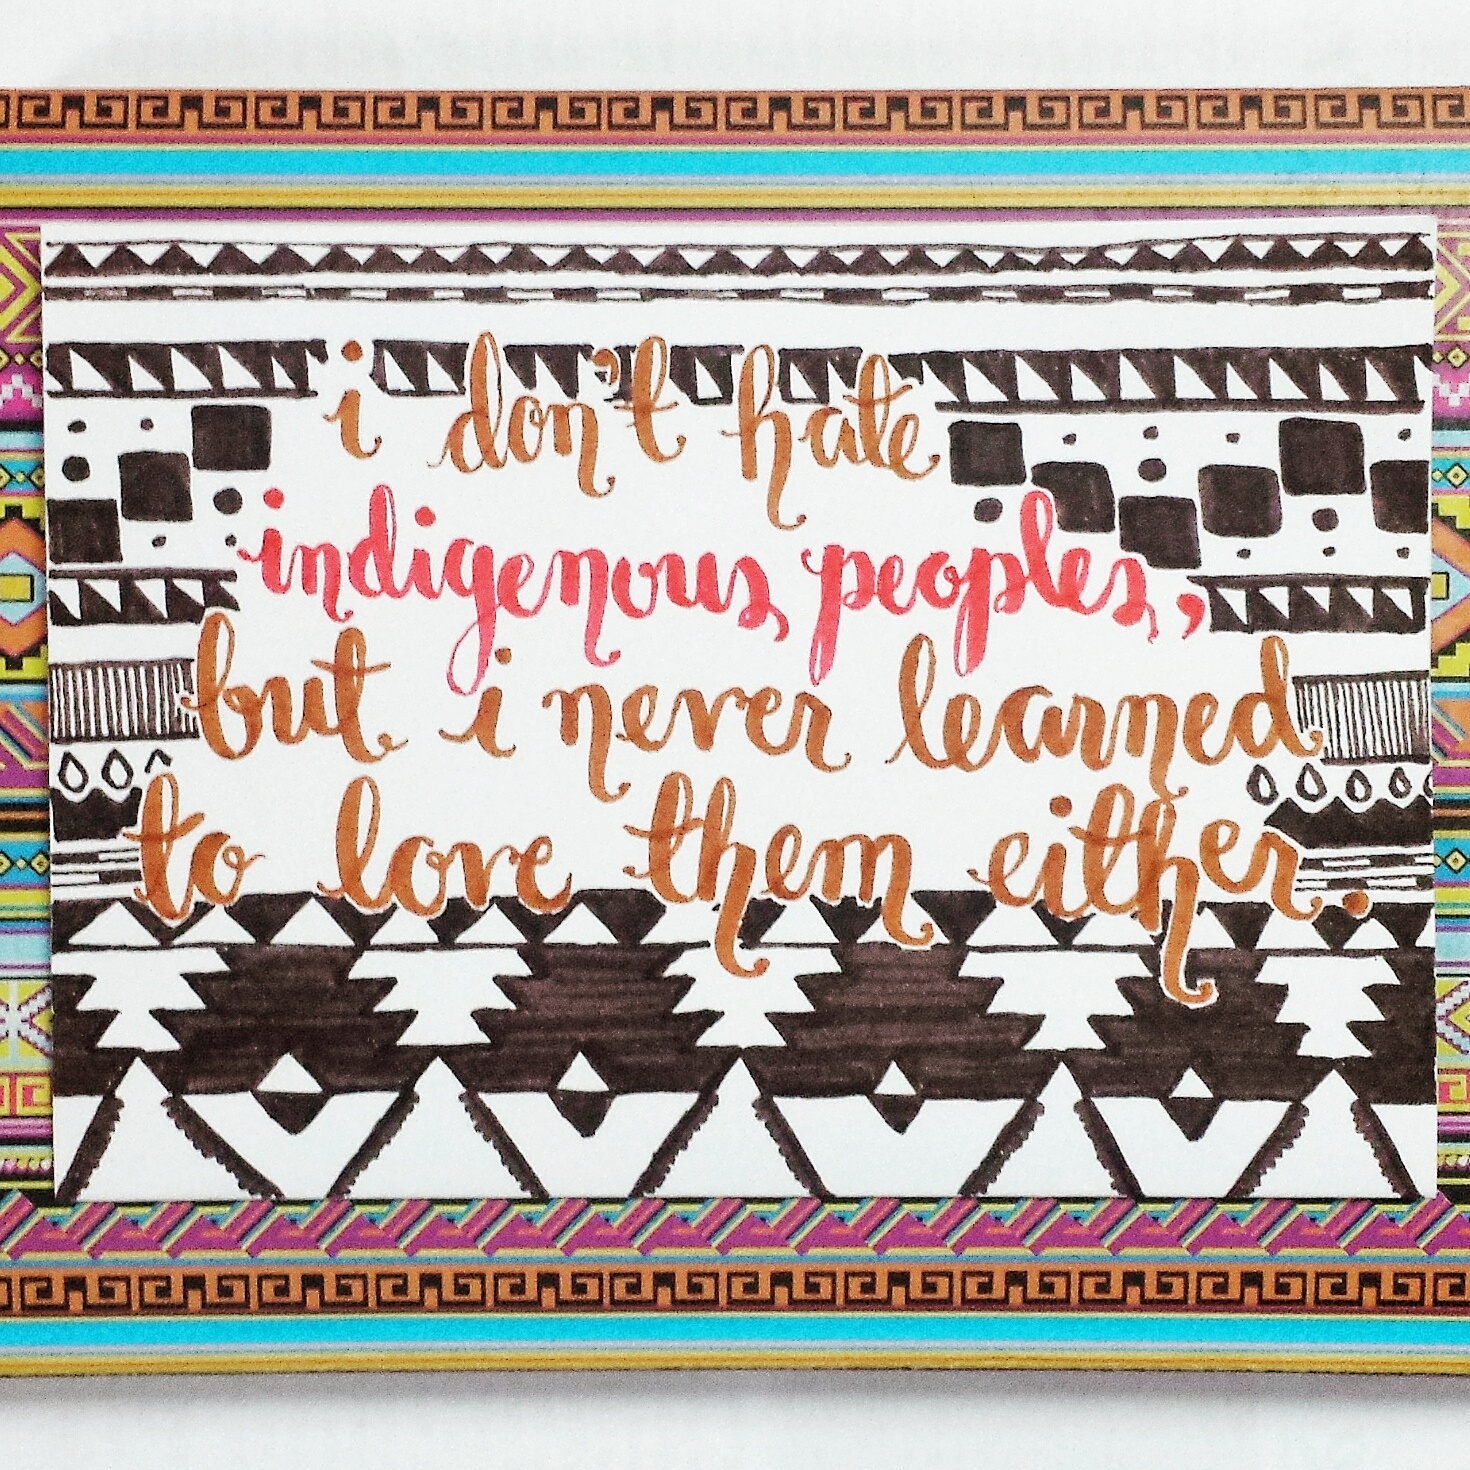 i don't hate
indigenous peoples,
but i never learned
to love them either.